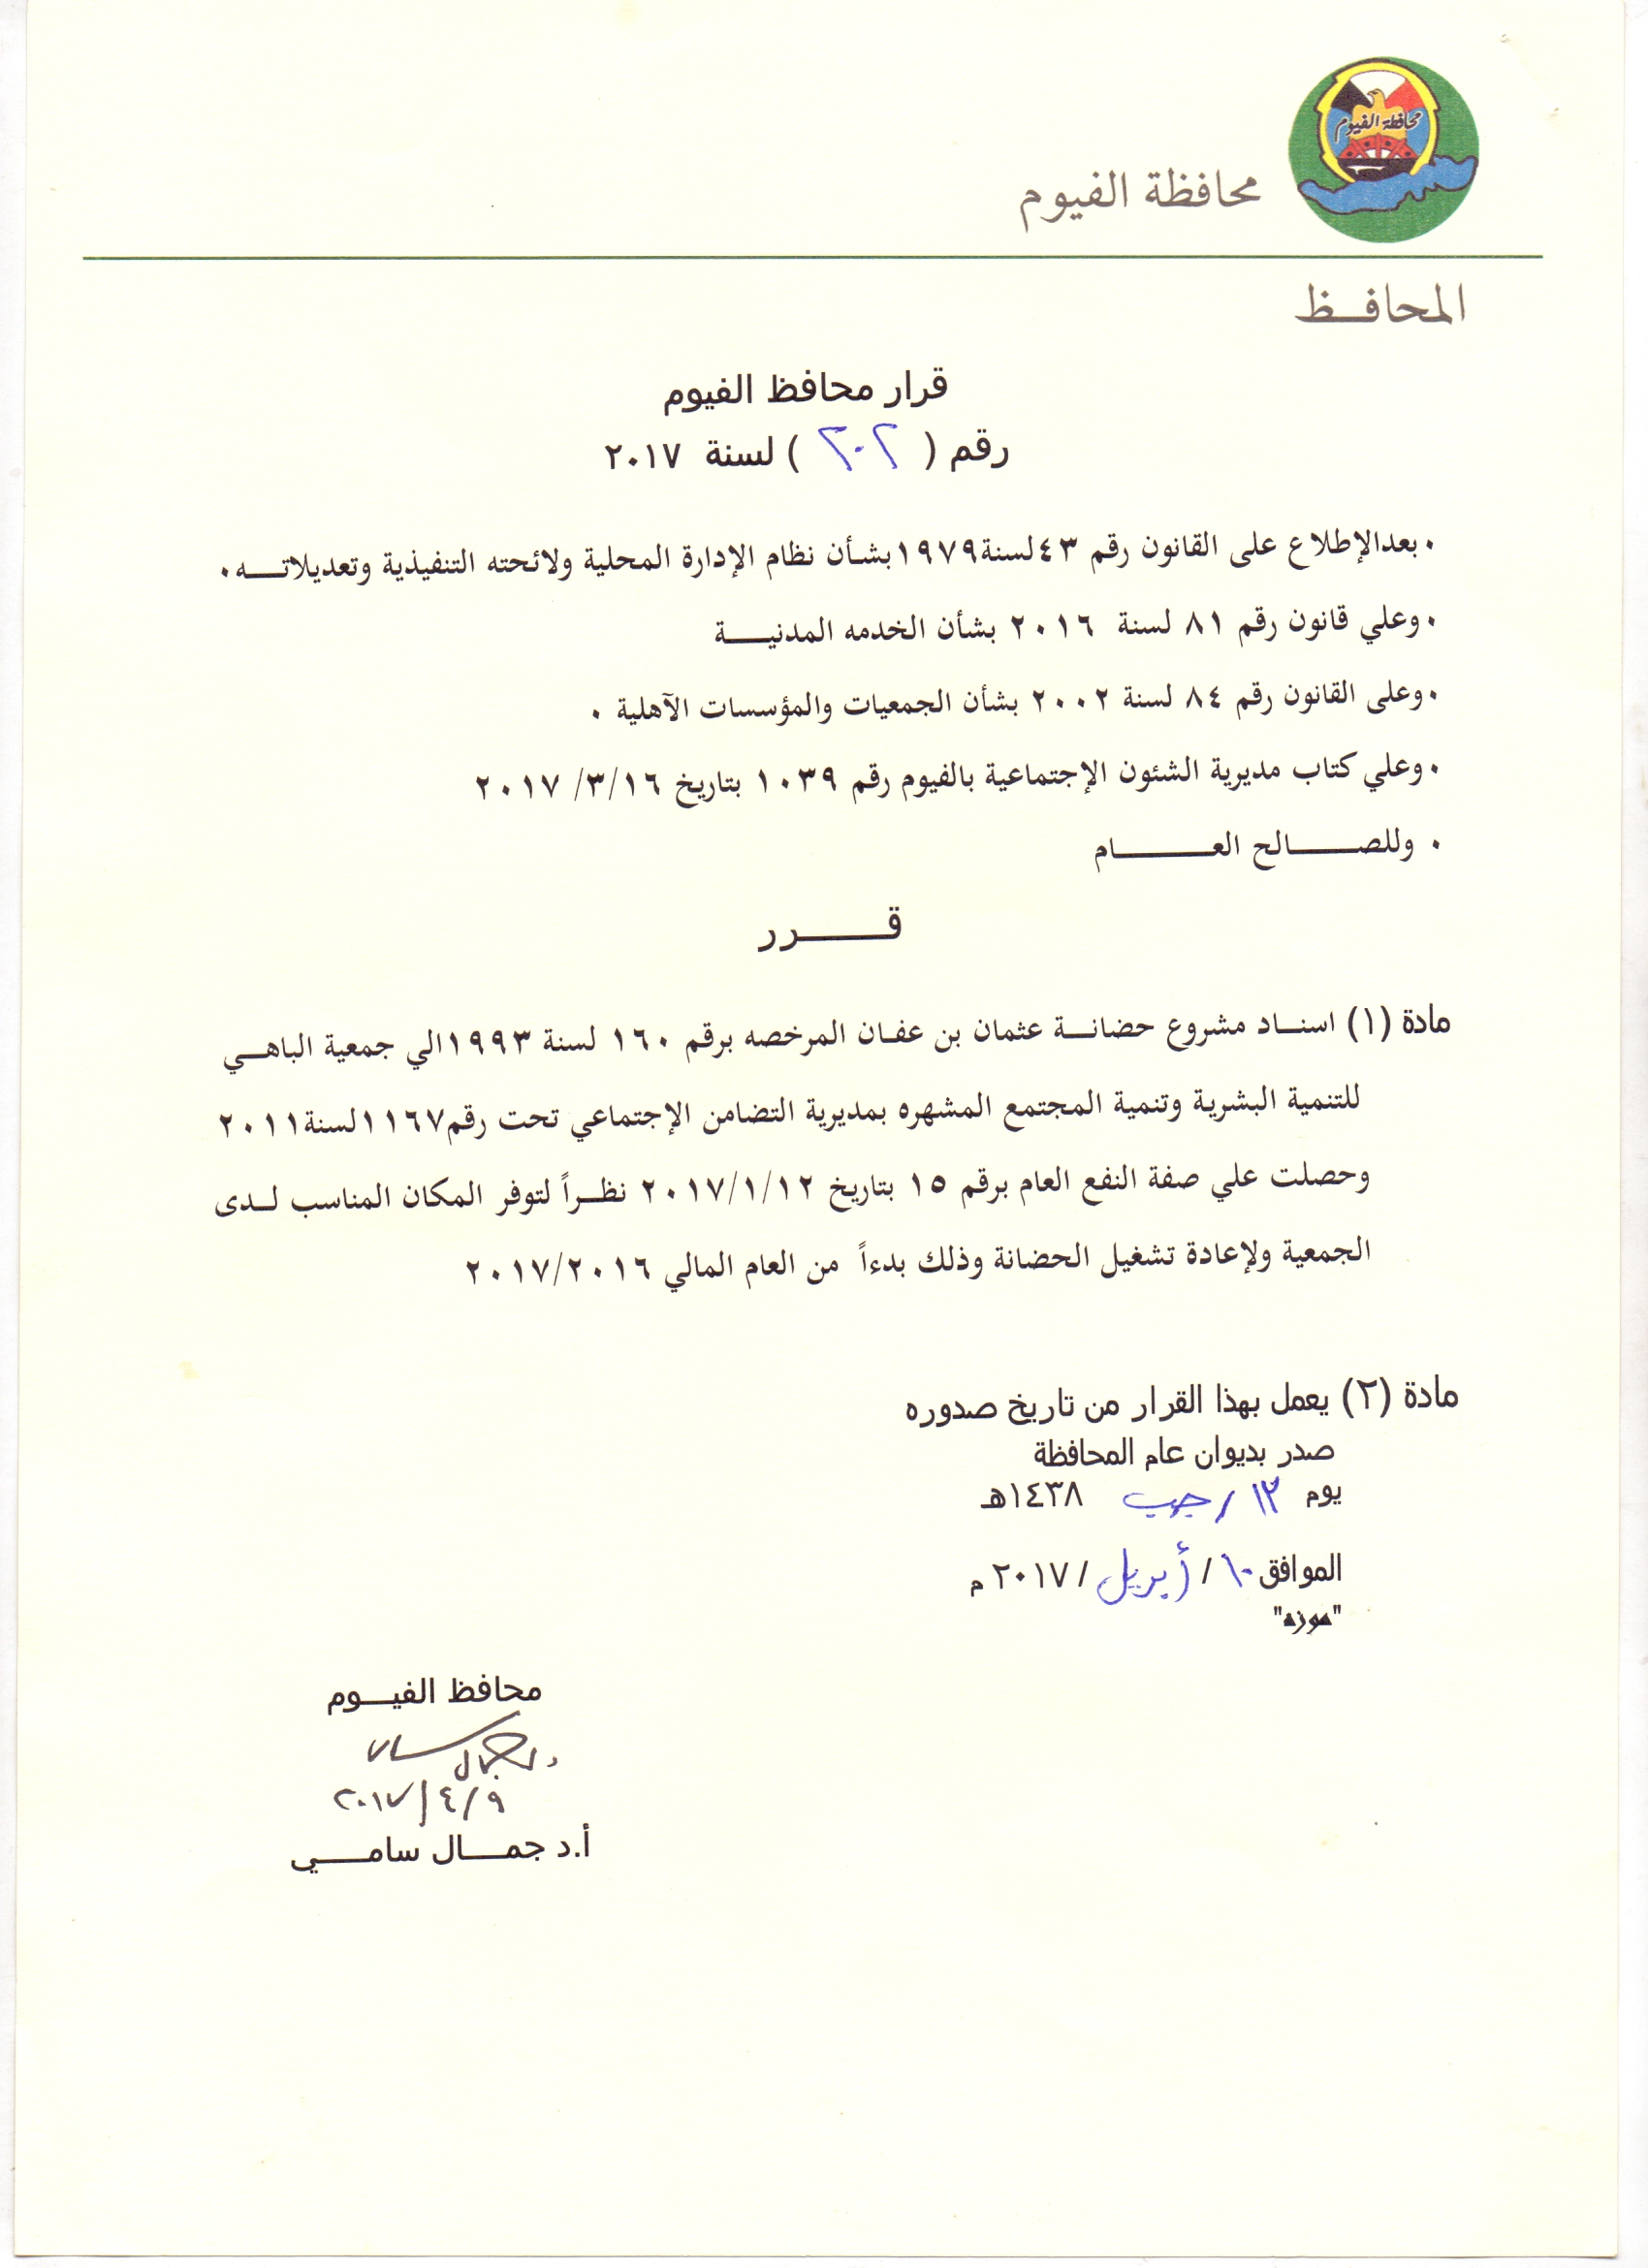 محافظة الفيوم
محافظة الفيوم
المحافــظ
قرار محافظ الفيوم
رقم ( ٢٠٢ ) لسنة ٢٠١٧
٠ بعدالإطلاع على القانون رقم ٤٣لسنة١٩٧٩بشأن نظام الإدارة المحلية ولائحته التنفيذية وتعديلاتــه٠
٠ وعلي قانون رقم ٨١ لسنة ٢٠١٦ بشأن الخدمه المدنيــة
٠وعلى القانون رقم ٨٤ لسنة ٢٠٠٢ بشأن الجمعيات والمؤسسات الآهلية ٠
٠ وعلي كتاب مديرية الشئون الإجتماعية بالفيوم رقم ١٠٣٩ بتاريخ ٣/١٦/ ٢٠١٧
٠ وللصــــالح العــــــام
قــــــرر
مادة (١) اسنــاد مشروع حضانــة عثمان بن عفـان المرخصه برقم ١٦٠ لسنة ١٩٩٣الي جمعية الباهــي
للتنمية البشرية وتنمية المجتمع المشهره بمديرية التضامن الإجتماعي تحت رقم١١٦٧لسنة٢٠١١
وحصلت علي صفة النفع العام برقم ١٥ بتاريخ ٢٠١٧/١/١٢ نظــراً لتوفر المكان المناسب لــدى
الجمعية ولإعادة تشغيل الحضانة وذلك بدءاً من العام المالي ٢٠١٧/٢٠١٦
مادة (٢) يعمل بهذا القرار من تاريخ صدوره
صدر بديوان عام المحافظة
يوم ١٣ / رجب ١٤٣٨هـ
الموافق ١٠ / أبريل / ٢٠١٧ م
"موزه"
محافظ الفيـــوم
٢٠١٧/٤/٩
أ.د جمـــال سامـــــي